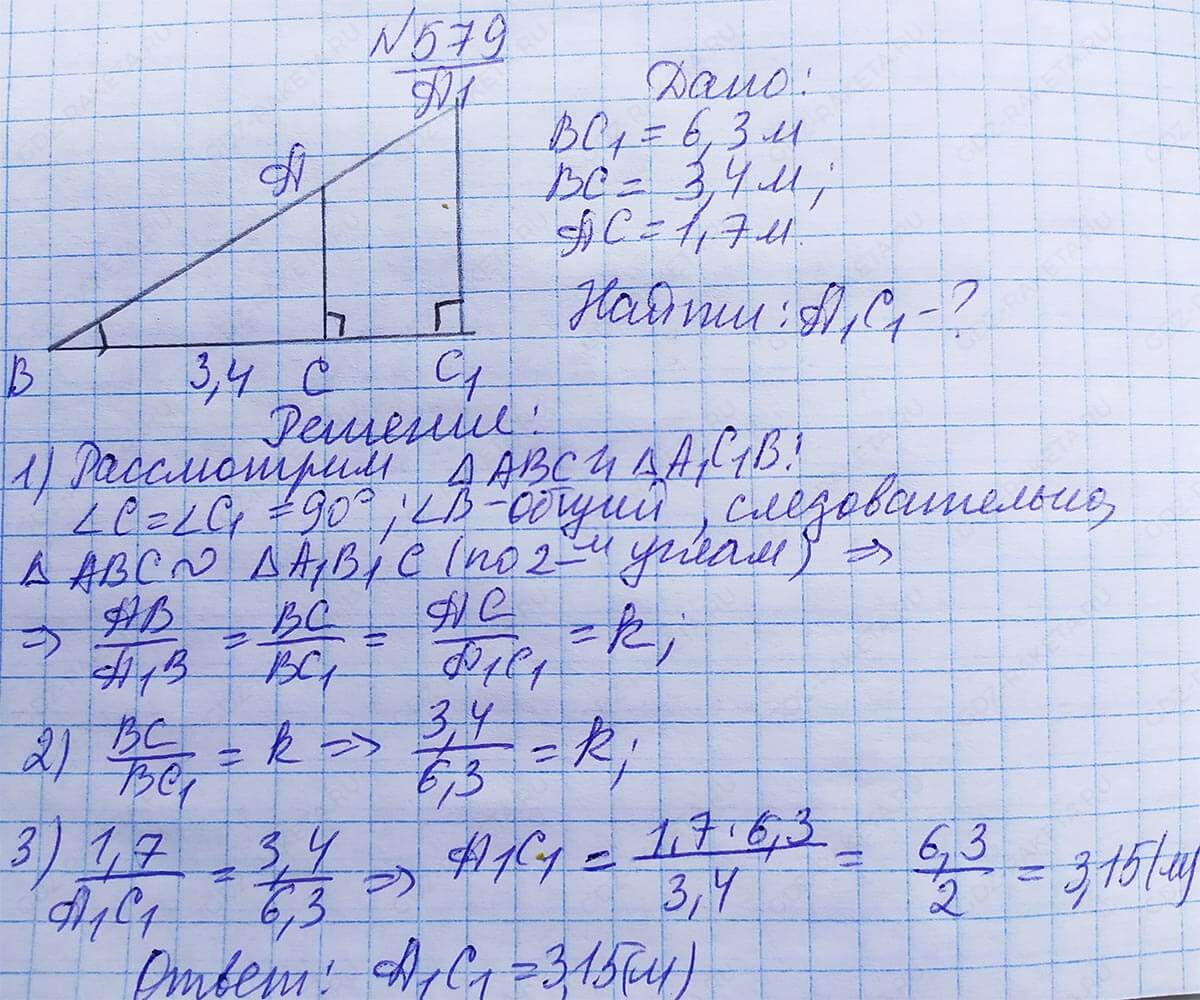 №579
A1
Дано:
BC1 = 6,3м
BC = 3,4м;
AC = 1,7м.
Найти: A1C1 - ?
A
B 3,4 C C1
Решение:
1) Рассмотрим △ABC и △A1C1B:
∠C=∠C1 =90°; ∠B-общий, следовательно,
△ABC ~ △A1B1C (по 2-м углам) =>
=> AB/A1B = BC/BC1 = AC/A1C1 = k;
2) BC/BC1 = k => 3,4/6,3 = k;
3) 1,7/A1C1 = 3,4/6,3 => A1C1 = 1,7·6,3/3,4 = 6,3/2 = 3,15(м)
Ответ: A1C1 = 3,15(м)
GDZ-RAKETA.RU